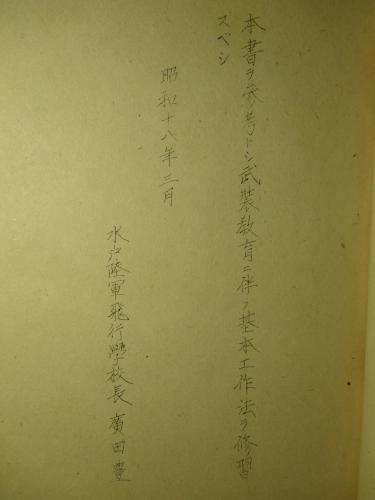 本書ヲ參考トシ武裝教育ニ伴フ基本工作法ヲ修習
スベシ
昭和十八年三月
水戸陸軍飛行學校長 廣田豊